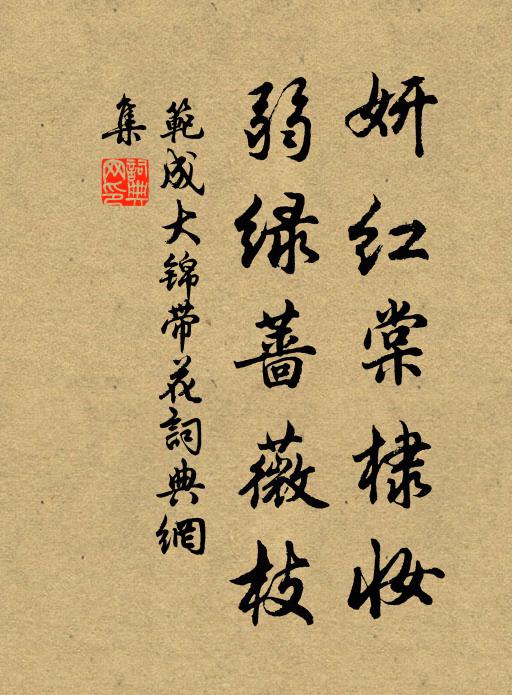 妍红棠棣妆
弱绿蔷薇枝
範成大锦带花詞典網
集
詞典
网印